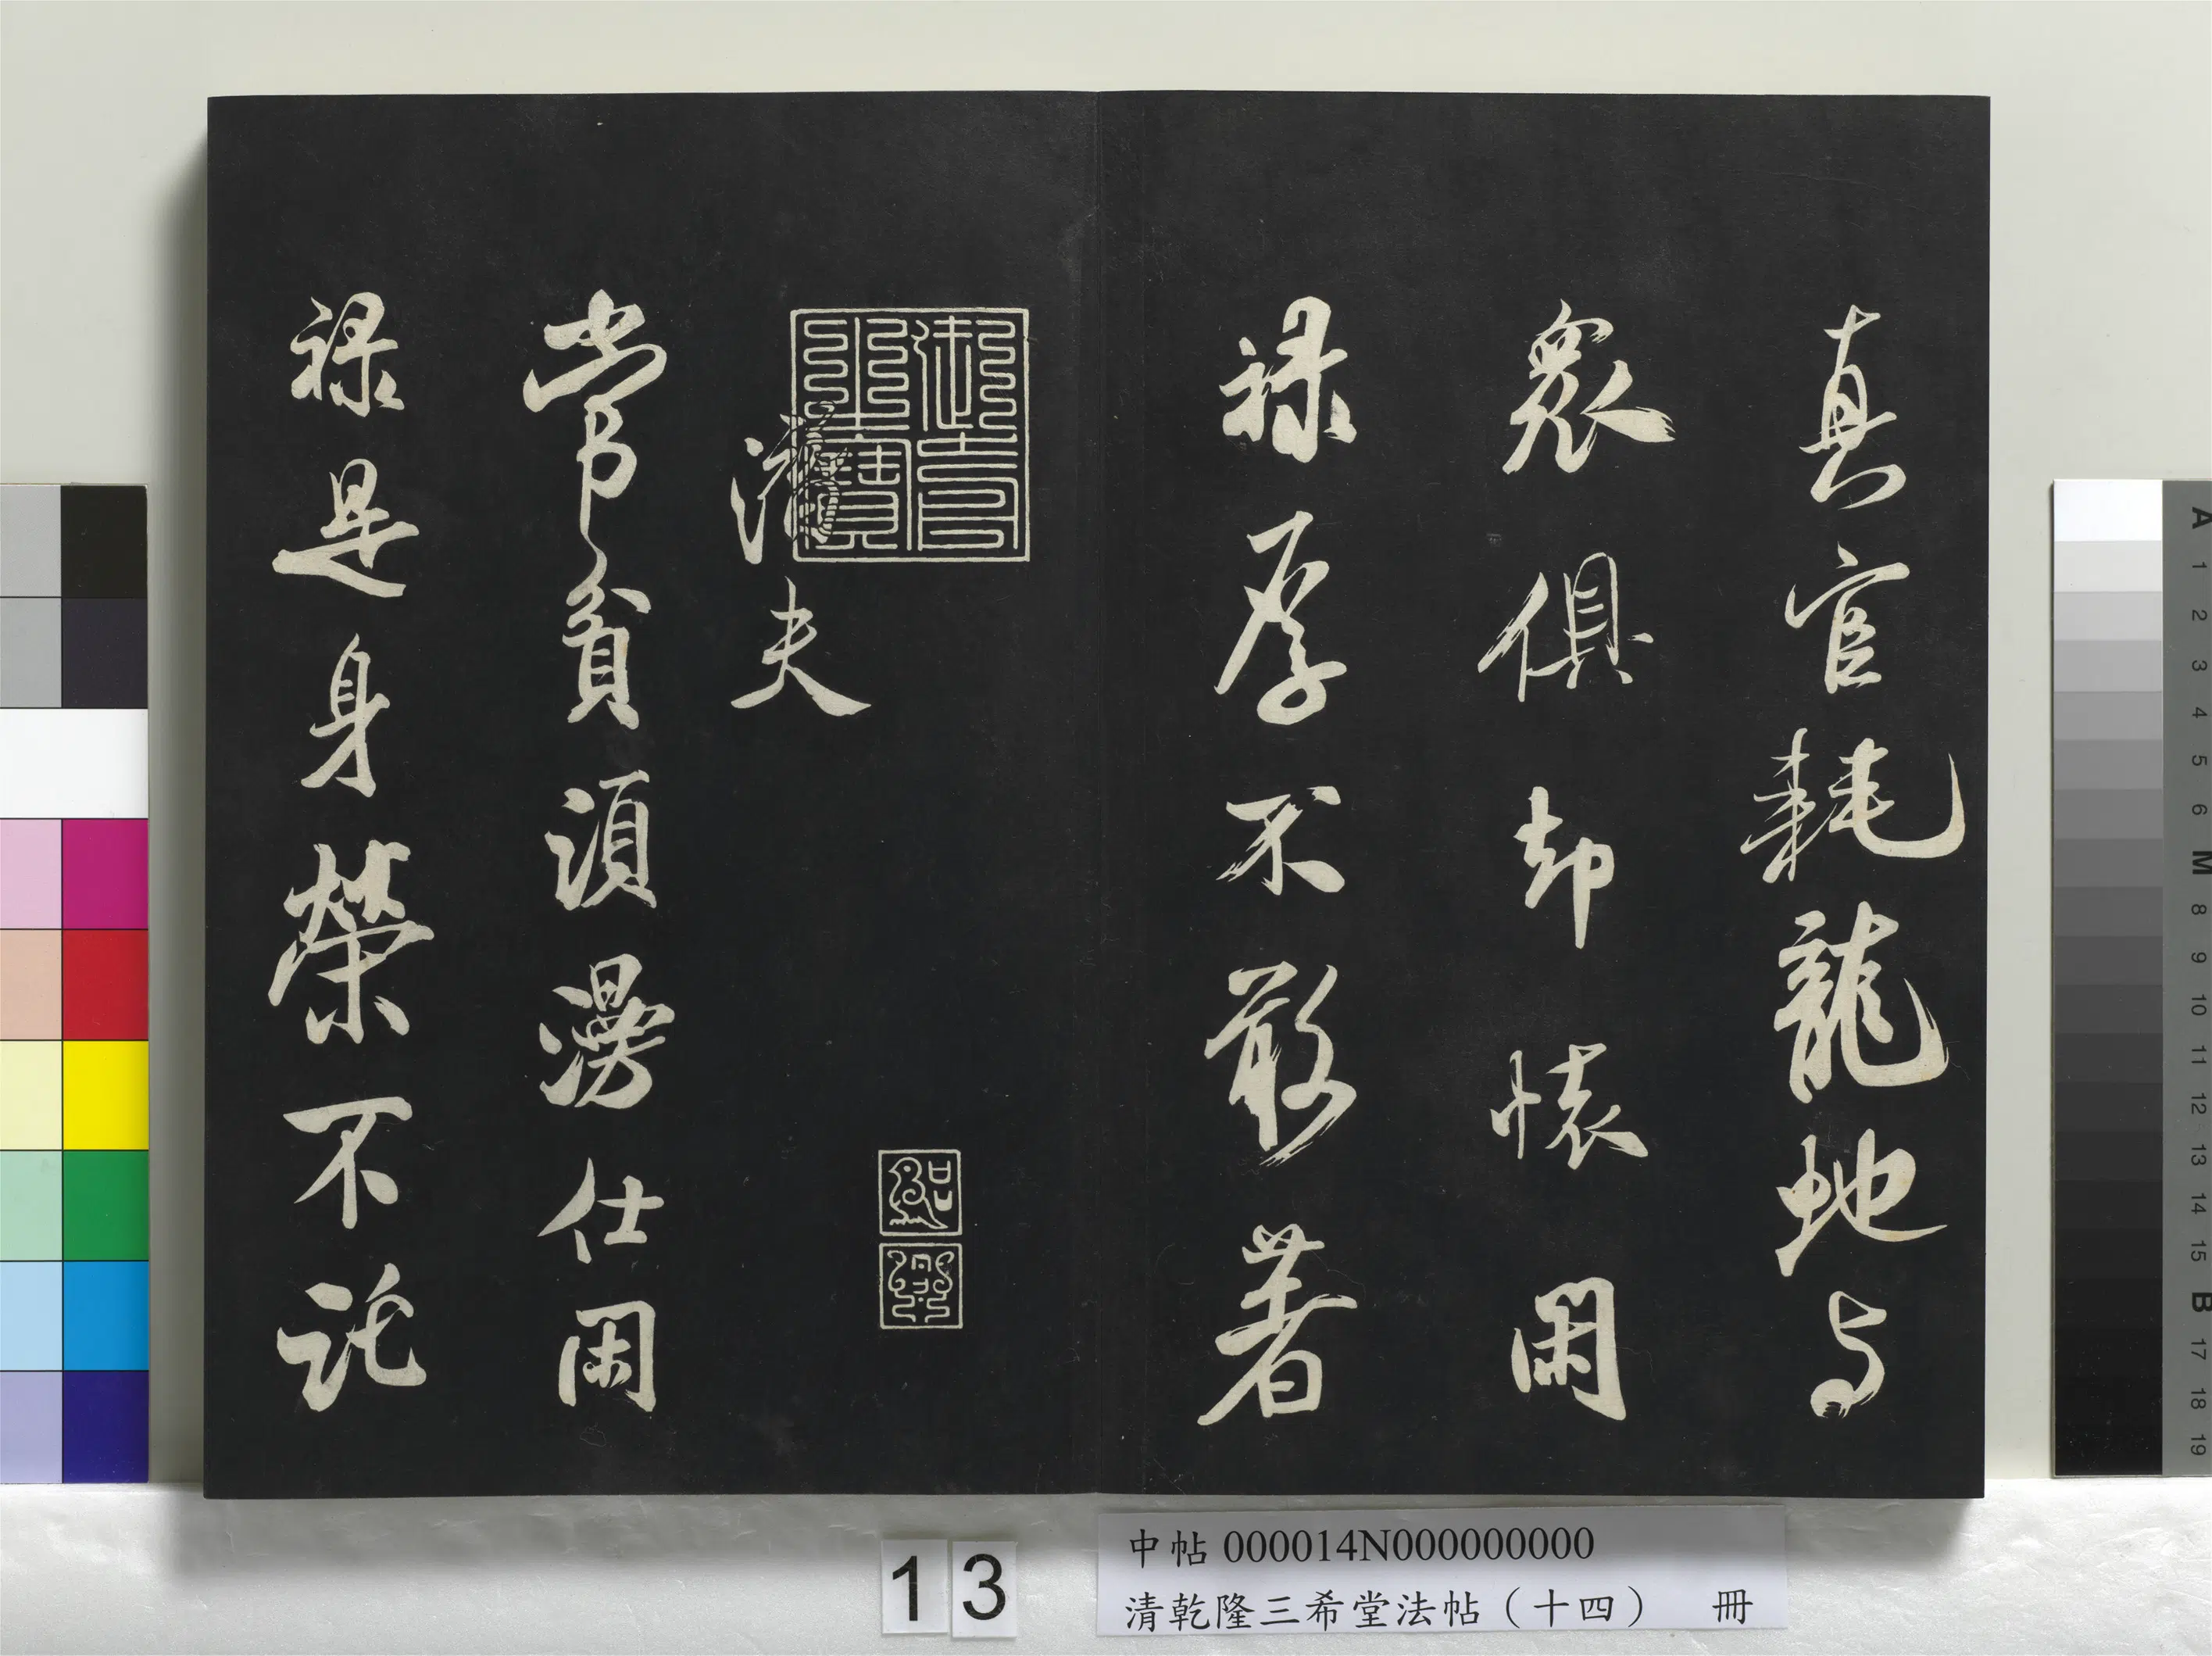 真官耗龍虵与
衆俱却懷閑
禄厚不敢著
潛夫
紹興
常貧須漫仕閑
禄是身榮不託
13
中帖 000014N000000000
清乾隆三希堂法帖（十四） 冊
A 1 2 3 4 5 6 M 8 9 10 11 12 13 14 15 B 17 18 19